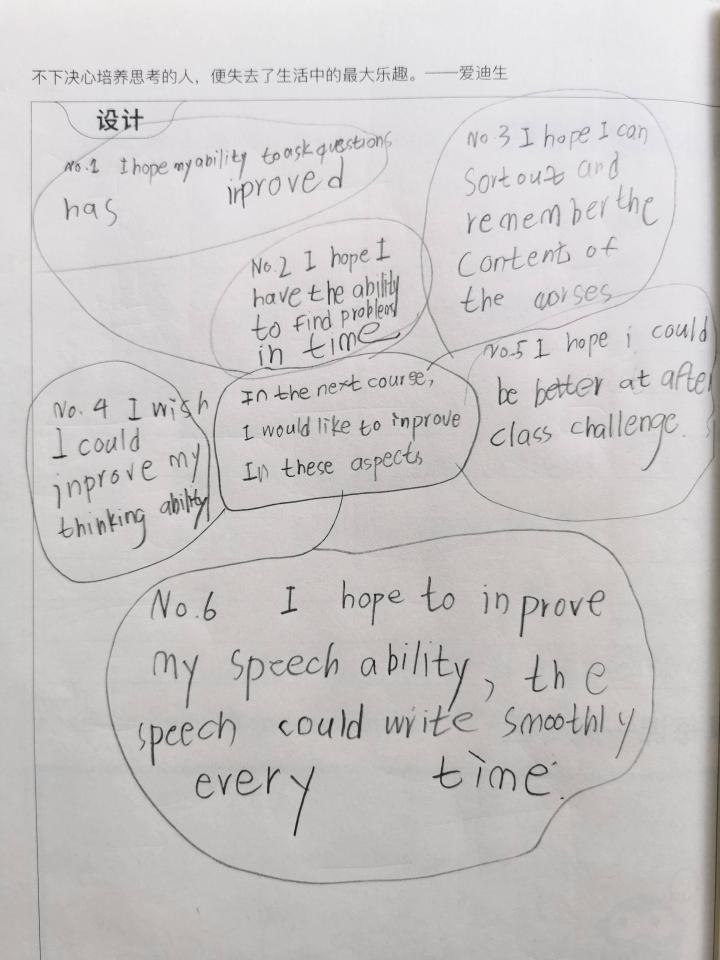 不下决心培养思考的人，便失去了生活中的最大乐趣。——爱迪生
设计
No.1 I hope my ability to ask questions
has inproved
No.2 I hope I
have the ability
to find problem
in time
No.3 I hope I can
Sort out and
remember the
Content of
the corses
No. 4 I wish
I could
inprove my
thinking ability
In the next course,
I would like to inprove
In these aspects
No.5 I hope i could
be better at after
class challenge.
No.6 I hope to inprove
my speech ability, the
speech could write smoothly
every time.